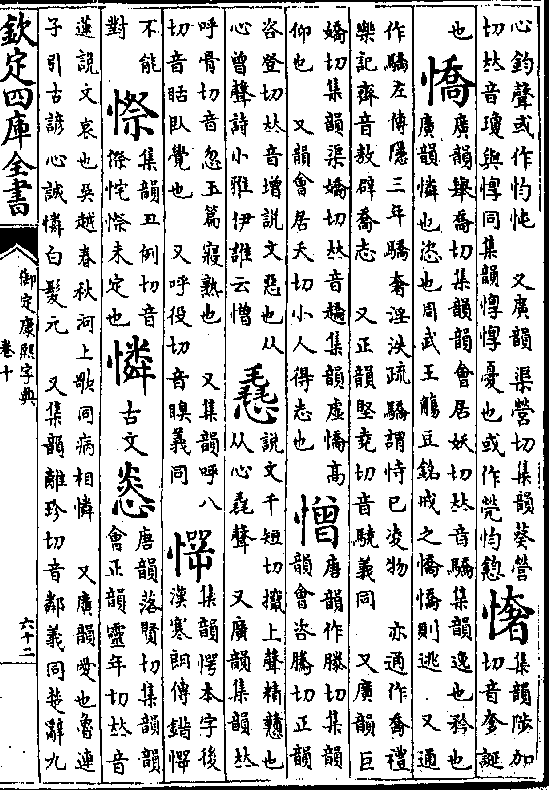 心鈞聲或作恂 又廣韻渠營切集韻葵營
切𠀤音瓊與惸同集韻惸惸憂也或作煢恂
集韻陟加
切音奓誕
也
憍
廣韻舉喬切集韻韻會居妖切𠀤音驕集韻逸也矜也
廣韻憐也恣也周武王觴豆銘戒之憍憍則逃 又通
作驕左傳隱三年驕奢淫泆疏驕謂恃己淩物 亦通作喬禮
樂記齊音敖辟喬志 又正韻堅堯切音驍義同 又廣韻巨
嬌切集韻渠嬌切𠀤音趫集韻虛憍高
仰也 又韻會居夭切小人得志也
憎
唐韻作滕切集韻
韻會咨騰切正韻
咨登切𠀤音增說文惡也从
心曾聲詩小雅伊誰云憎
𢣂
說文千短切攛上聲精戇也
从心毳聲 又廣韻集韻𠀤
呼骨切音忽玉篇寢熟也 又集韻呼八
切音𥄎臥覺也 又呼役切音瞁義同
㦍
集韻愕本字後
漢寒朗傳錯㦍
不能
對
憏
集韻丑例切音
傺㤞憏未定也
憐
古文
㷠
唐韻落賢切集韻韻
會正韻靈年切𠀤音
蓮說文哀也吳越春秋河上歌同病相憐 又廣韻愛也魯連
子引古諺心誠憐白髮元 又集韻離珍切音鄰義同楚辭九
欽定四庫全書
御定康熙字典
卷十
六十二